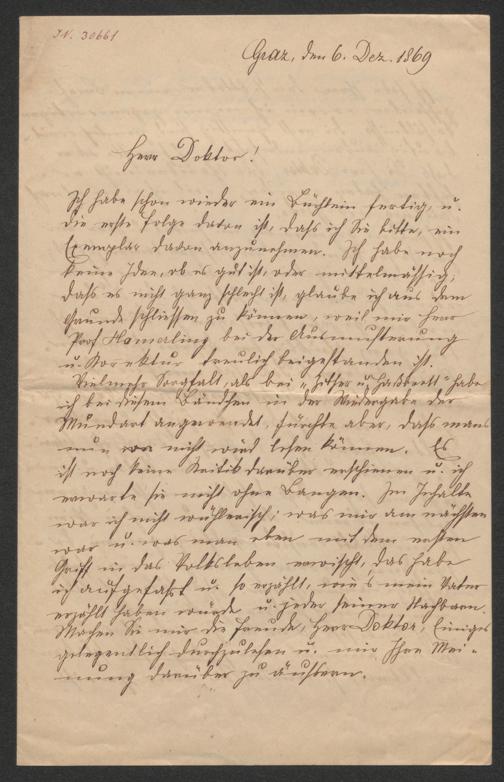 I.N. 30661
Graz, den 6. Dez. 1869
Herr Doktor!
Ich habe schon wieder ein Büchlein fertig, u.
die erste Folge davon ist, dass ich Sie bitte, ein
Exemplar davon anzunehmen. Ich habe noch
keine Idee, ob es gut ist, oder mittelmässig;
dass es nicht ganz schlecht ist, glaube ich aus dem
Grunde schliessen zu können, weil mir Herr
Prof. Hamaling bei der Ausmusterung
u. Korrektur treulich beigestanden ist.
Vielmehr Sorgfalt, als bei „Zither u. Hackbrett" habe
ich bei diesem Bändchen in der Wiedergabe der
Mundart angewendet, fürchte aber, dass mans
nun nicht wird lesen können. Es
ist noch keine Kritik darüber erschienen u. ich
erwarte sie nicht ohne Bangen. Im Inhalte
war ich nicht wählerisch; was mir am nächsten
war u. was man eben mit dem ersten
Griff in das Volksleben erwischt, das habe
ich aufgefasst u. so erzählt, wie's mein Vater
erzählt haben würde u. jeder seiner Nachbarn.
Machen Sie mir die Freude, Herr Doktor, Einiges
gelegentlich durchzulesen u. mir Ihre Mei-
nung darüber zu äussern.